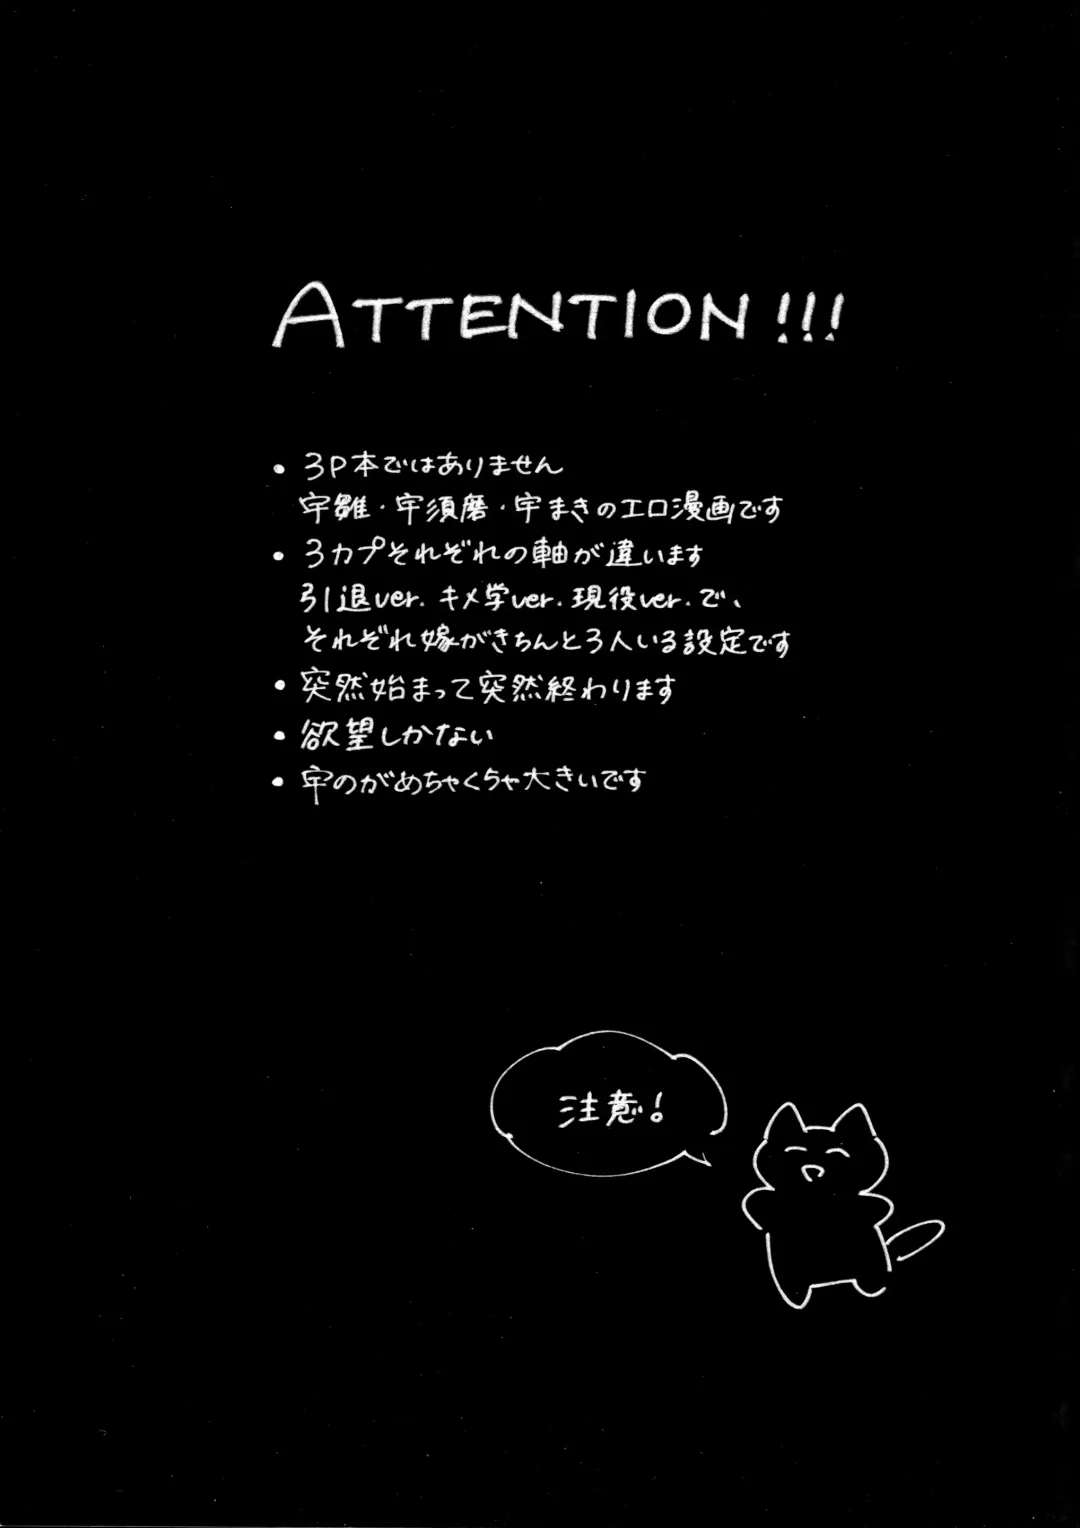 ATTENTION!!!
• 3P本ではありません
宇雛・宇須磨・宇まきのエロ漫画です
• 3カプそれぞれの軸が違います
引退ver. キメ学ver. 現役ver. で、
それぞれ嫁がきちんと3人いる設定です
• 突然始まって突然終わります
• 欲望しかない
• 宇のがめちゃくちゃ大きいです
注意!